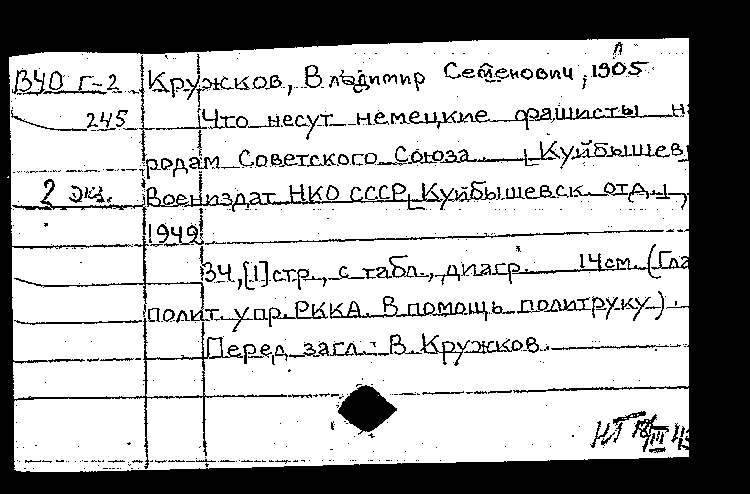 ВЧО Г-2 Кружков, Владимир Семенович, 1905
245 Что несут немецкие фашисты на
родам Советского Союза. [Куйбышев
2 экз. Воениздат НКО СССР, Куйбышевск. отд.],
1949
34,[1]стр., с табл., диагр. 14см. (Гла
полит. упр. РККА. В помощь политруку).
Перед загл.: В. Кружков.
НГ 18/III 43